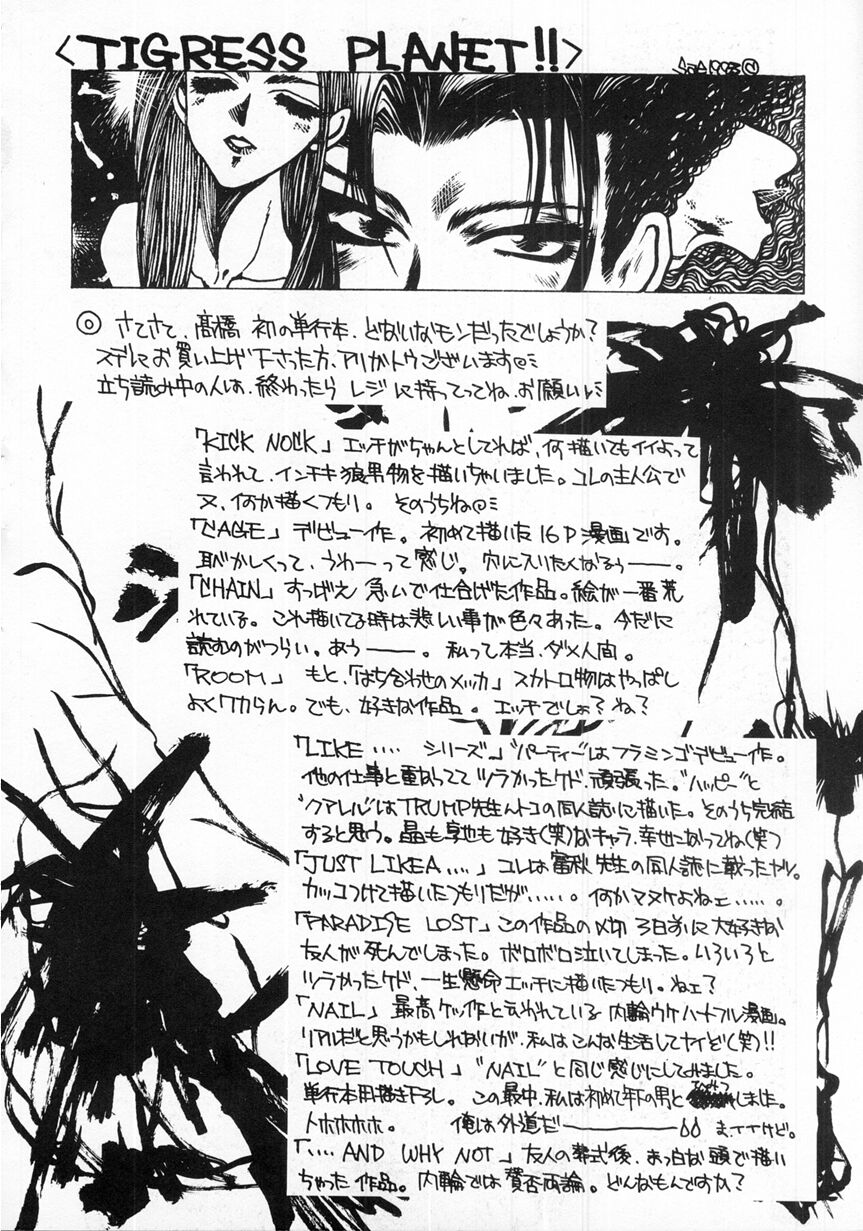 <TIGRESS PLANET!!>
1993
◎ さてさて、高橋 初の単行本、どないなモンだったでしょうか?
スデにお買い上げ下さった方、アリガトウございます
立ち読み中の人は、終わったら レジに持ってってね、お願い
「KICK NOCK」エッチがちゃんとしてれば、何描いてもイイよって
言われて、インチキ狼男物を描いちゃいました。コレの主人公で
又、何か描くつもり。 そのうちね
「CAGE」デビュー作。初めて描いた16P漫画です。
恥かしくって、うわーって感じ。穴に入りたくなるぅ――。
「CHAIN」すっばえ 急いで仕上げた作品。絵が一番荒
れている。これ描いてる時は悲しい事が色々あった。今だに
読むのがつらい。あぅ――。 私って本当、ダメ人間。
「ROOM」もと、「はち合わせのメッカ」スカトロ物はやっぱし
よくワカらん。でも、好きな作品。エッチでしょ?ね?
「LIKE ‥‥ シリーズ」"パーティー"はフラミンゴデビュー作。
他の仕事と重なってて ツラかったケド、頑張った。"ハッピー"と
"クアレル"はTRUMP先生んトコの同人誌に描いた。そのうち完結
すると思う。晶も享也も好き(笑)なキャラ、幸せになってね(笑)
「JUST LIKE A‥‥」コレは 先生の同人誌に載ったヤツ。
カッコつけて描いたつもりだが‥‥‥。何かマヌケよねェ‥‥‥。
「PARADISE LOST」この作品の〆切 3日前に大好きな
友人が死んでしまった。ボロボロ泣いてしまった。いろいろと
ツラかったケド、一生懸命エッチに描いたつもり。ねェ?
「NAIL」最高ケッ作と云われている 内輪ウケハートフル漫画。
リアルだと思うかもしれないが、私はこんな生活してナイぞ(笑)!!
「LOVE TOUCH」"NAIL"と同じ感じにしてみました。
単行本用描き下ろし。この最中、私は初めて年下の男と しました。
ホホホホ。 俺は外道だ――― ま、イイけど。
「‥‥AND WHY NOT」友人の葬式後、まっ白な頭で描い
ちゃった作品。内輪では賛否両論。どんなもんですか?